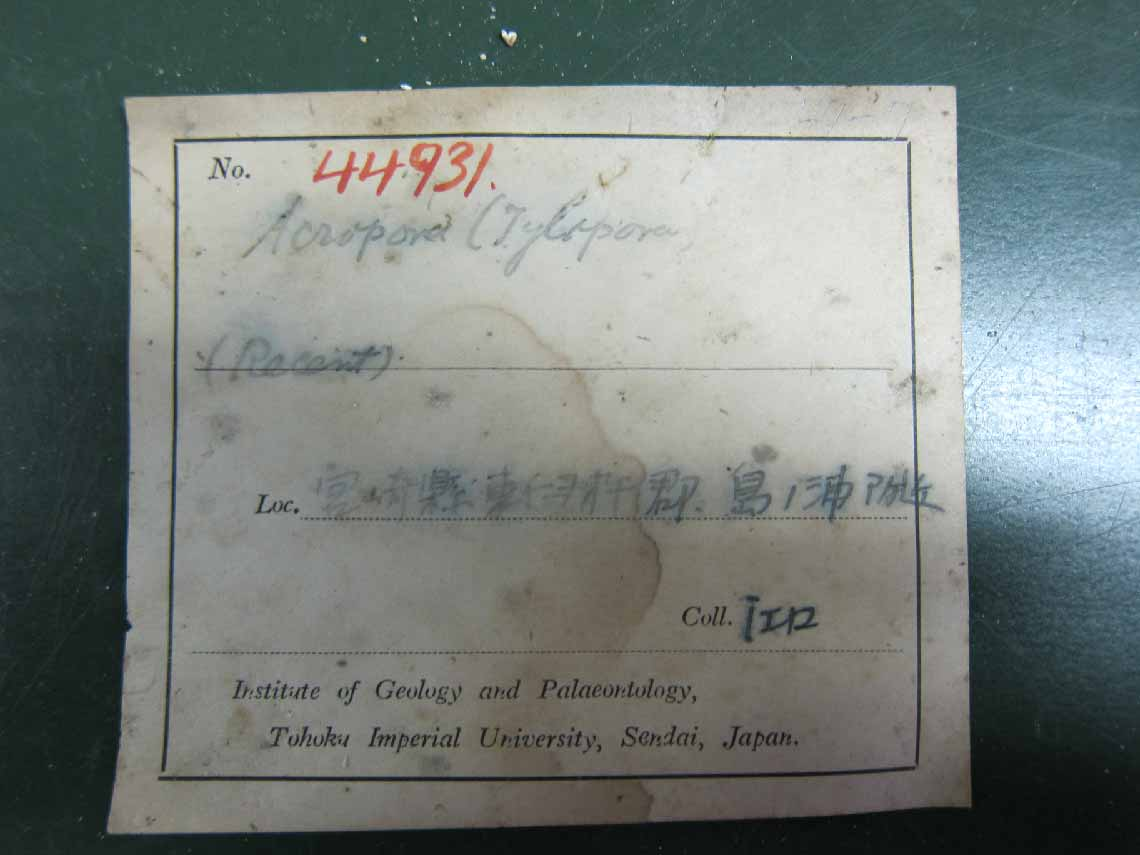 No. 44931.
Acropora (Tylopora)
(Recent)
Loc. 宮崎縣東臼杵郡.島ノ浦附近
Coll. 江口
Institute of Geology and Palaeontology,
Tohoku Imperial University, Sendai, Japan.